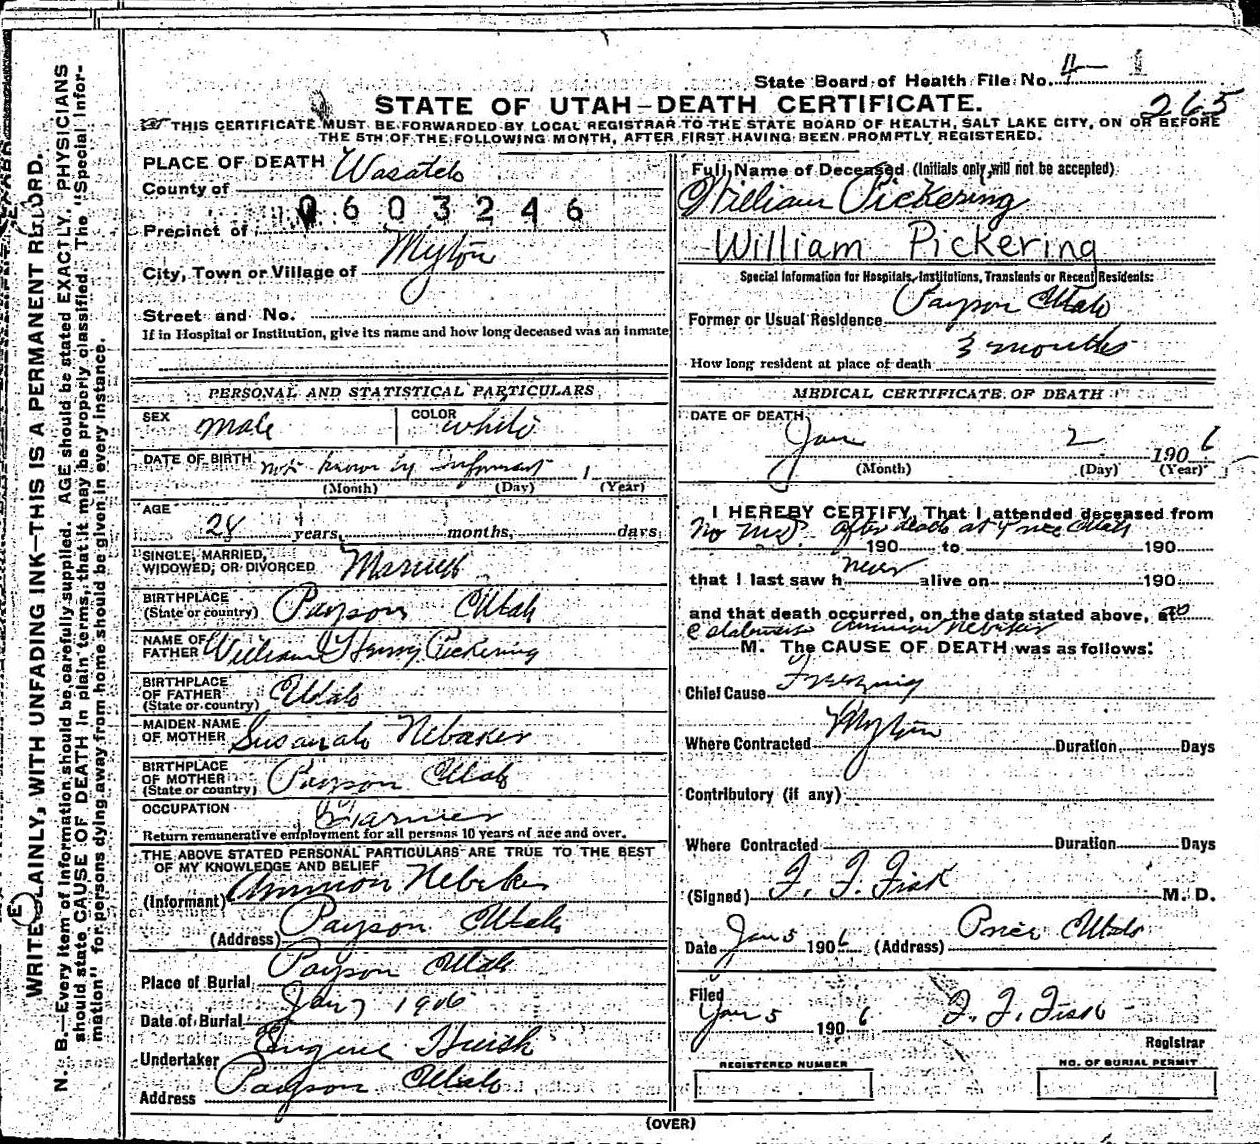 State Board of Health File No. 4 1
265
STATE OF UTAH—DEATH CERTIFICATE.
THIS CERTIFICATE MUST BE FORWARDED BY LOCAL REGISTRAR TO THE STATE BOARD OF HEALTH, SALT LAKE CITY, ON OR BEFORE
THE 5TH OF THE FOLLOWING MONTH, AFTER FIRST HAVING BEEN PROMPTLY REGISTERED.
WRITE PLAINLY, WITH UNFADING INK—THIS IS A PERMANENT RECORD.
N. B.—Every item of information should be carefully supplied. AGE should be stated EXACTLY. PHYSICIANS
should state CAUSE OF DEATH in plain terms, that it may be properly classified. The "Special Infor-
mation" for persons dying away from home should be given in every instance.
PLACE OF DEATH
County of Wasatch
0603246
Precinct of
City, Town or Village of Myton
Street and No.
If in Hospital or Institution, give its name and how long deceased was an inmate
PERSONAL AND STATISTICAL PARTICULARS
SEX male COLOR white
DATE OF BIRTH not known by informant 1
(Month) (Day) (Year)
AGE
28 years, months, days
SINGLE, MARRIED,
WIDOWED, OR DIVORCED Married
BIRTHPLACE
(State or country) Payson Utah
NAME OF
FATHER William Henry Pickering
BIRTHPLACE
OF FATHER
(State or country) Utah
MAIDEN NAME
OF MOTHER Susanah Nebaker
BIRTHPLACE
OF MOTHER
(State or country) Payson Utah
OCCUPATION Farmer
Return remunerative employment for all persons 10 years of age and over.
THE ABOVE STATED PERSONAL PARTICULARS ARE TRUE TO THE BEST
OF MY KNOWLEDGE AND BELIEF
(Informant) Ammon Nebeker
(Address) Payson Utah
Place of Burial Payson Utah
Date of Burial Jan 7 1906
Undertaker Eugene Huish
Address Payson Utah
Full Name of Deceased (Initials only will not be accepted)
William Pickering
William Pickering
Special Information for Hospitals, Institutions, Transients or Recent Residents:
Former or Usual Residence Payson Utah
How long resident at place of death 3 months
MEDICAL CERTIFICATE OF DEATH
DATE OF DEATH
Jan 2 1906
(Month) (Day) (Year)
I HEREBY CERTIFY, That I attended deceased from
No Md. after death at Price Utah
190 to 190
that I last saw h never alive on 190
and that death occurred, on the date stated above, at
Ammon Nebeker
M. The CAUSE OF DEATH was as follows:
Chief Cause Freezing
Where Contracted Myton Duration Days
Contributory (if any)
Where Contracted Duration Days
(Signed) F. F. Fisk M. D.
Date Jan 5 1906 (Address) Price Utah
Filed
Jan 5 1906 F. F. Fisk
Registrar
REGISTERED NUMBER NO. OF BURIAL PERMIT
(OVER)